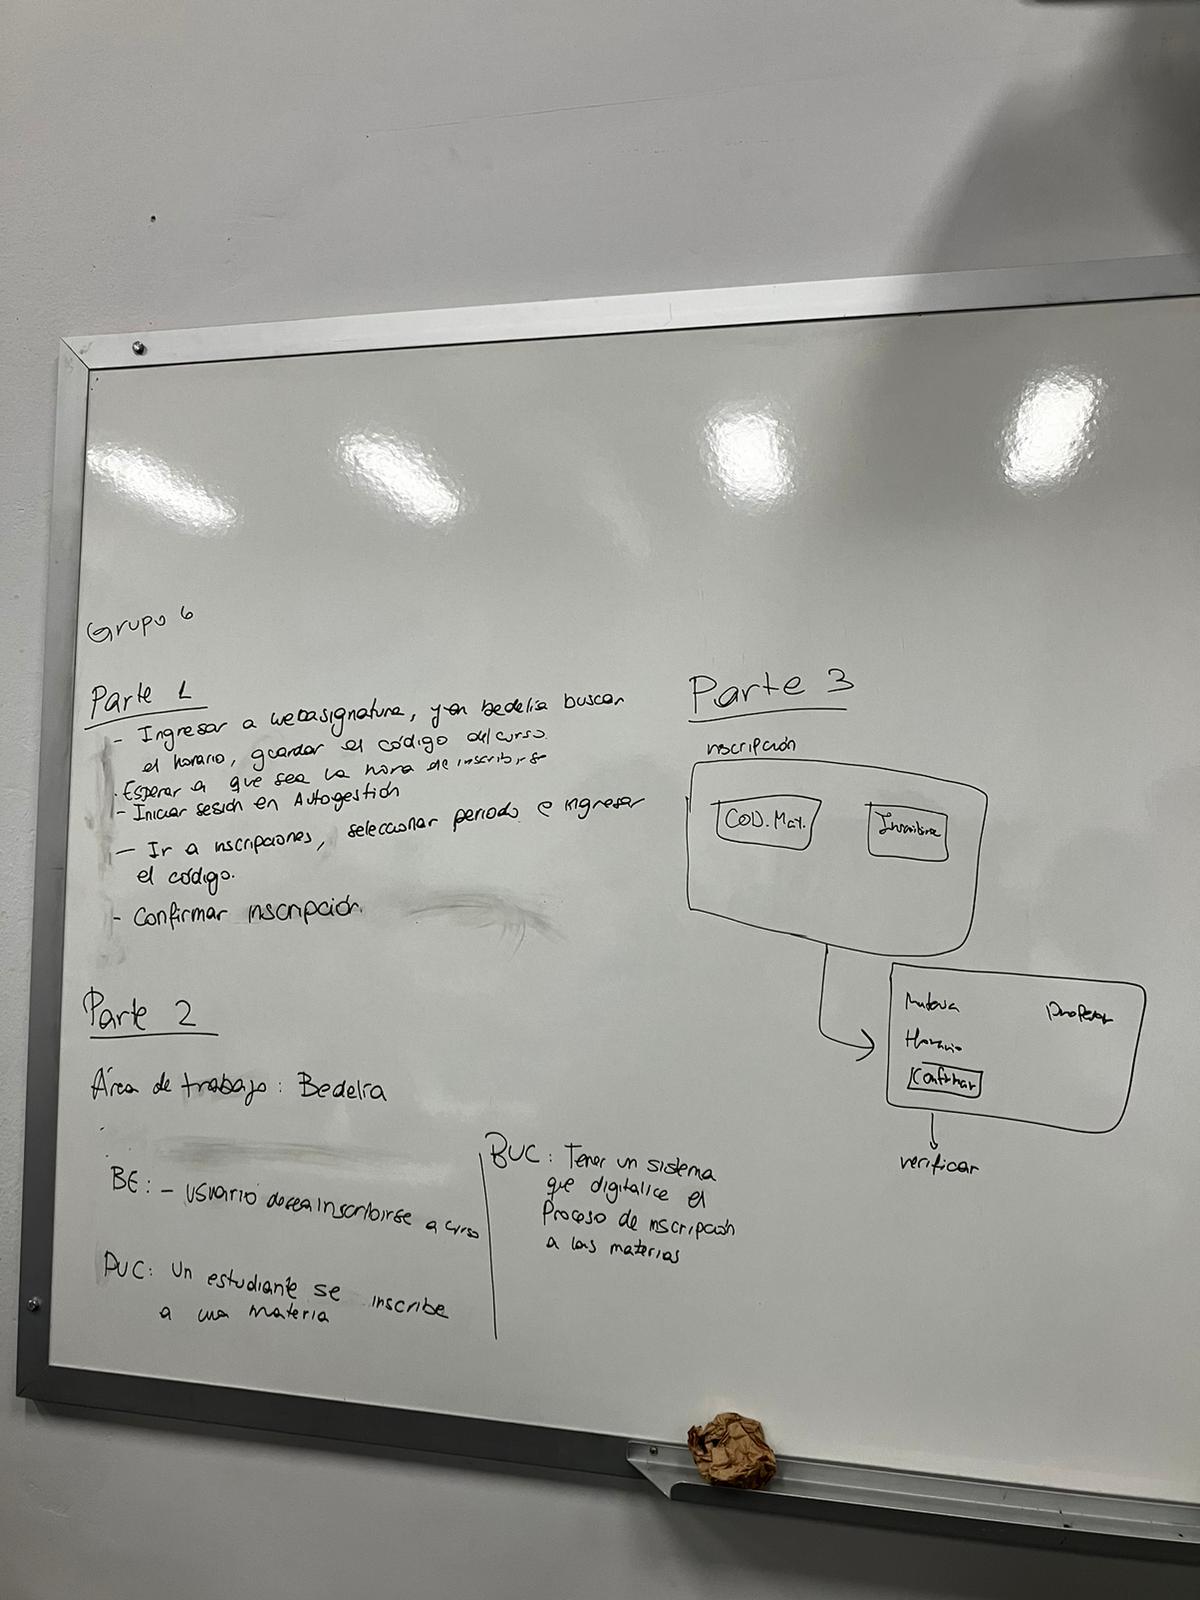 Grupo 6
Parte 1
- Ingresar a webasignatura, y en bedelía buscar
el horario, guardar el código del curso.
. Esperar a que sea la hora de inscribirse
- Iniciar sesión en Autogestión
- Ir a inscripciones, seleccionar periodo e ingresar
el código.
- Confirmar inscripción.
Parte 2
Área de trabajo: Bedelía
BE: - usuario desea inscribirse a curso
PUC: Un estudiante se inscribe
a una materia
BUC: Tener un sistema
que digitalice el
Proceso de inscripción
a las materias
Parte 3
inscripción
COD. Mat.
Inscribirse
Materia
Profesor
Horario
Confirmar
verificar